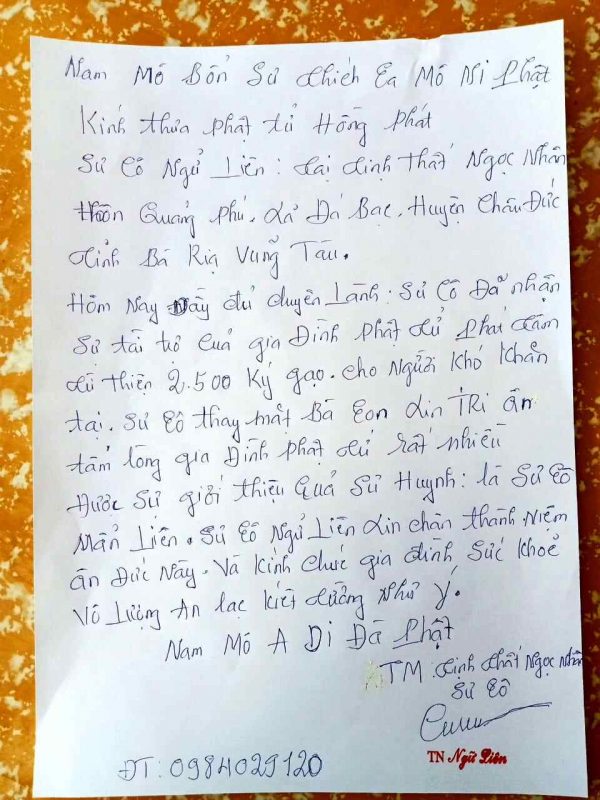 Nam Mô Bổn Sư Thích Ca Mô Ni Phật
Kính thưa phật tử Hồng Phát
Sư Cô Ngữ Liên: tại tịnh thất Ngọc Nhẫn
thôn Quảng Phú. Xã Đá Bạc. Huyện Châu Đức
tỉnh Bà Rịa Vũng Tàu.
Hôm Nay đầy đủ duyên Lành: Sư Cô Đã nhận
Sự tài trợ của gia Đình phật tử phát tâm
từ thiện 2.500 Ký gạo. cho Người Khó Khăn
tại. Sư Cô thay mặt Bà Con xin TRi ân
tấm lòng gia Đình phật tử rất nhiều
Được Sự giới thiệu Quả Sư Huynh: là Sư Cô
Mẫn Liên. Sư Cô Ngữ Liên xin chân thành Niệm
ân Đức Này. Và Kính chúc gia đình Sức Khoẻ
Vô Lượng An lạc Kiết tường Như Ý.
Nam Mô A Di Đà Phật
TM. tịnh thất Ngọc Nhẫn
Sư Cô
TN Ngữ Liên
ĐT: 0984029120